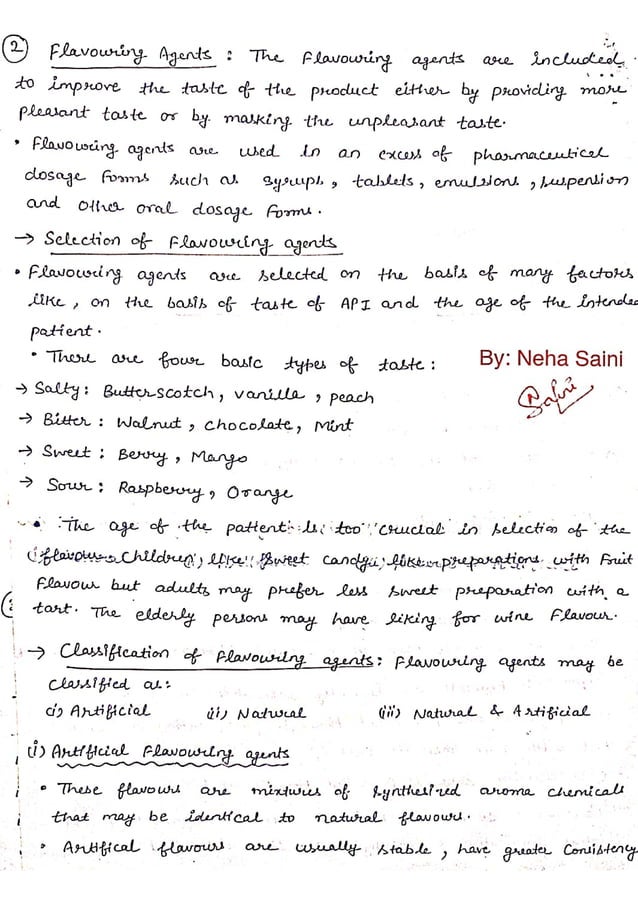 ② Flavouring Agents : The Flavouring agents are included
to improve the taste of the product either by providing more
pleasant taste or by masking the unpleasant taste.
• Flavouring agents are used in an excess of pharmaceutical
dosage forms such as syrups, tablets, emulsions, suspension
and other oral dosage forms.
→ Selection of Flavouring agents
• Flavouring agents are selected on the basis of many factors
like, on the basis of taste of API and the age of the intended
patient.
• There are four basic types of taste :
By: Neha Saini
Saini
→ Salty : Butterscotch, vanilla, peach
→ Bitter : Walnut, chocolate, Mint
→ Sweet : Berry, Mango
→ Sour : Raspberry, Orange
• The age of the patient is too crucial in selection of the
flavour. Children, like sweet candy like preparations with Fruit
Flavour but adults may prefer less sweet preparation with a
tart. The elderly persons may have liking for wine Flavour.
→ Classification of Flavouring agents : Flavouring agents may be
classified as:
(i) Artificial (ii) Natural (iii) Natural & Artificial
(i) Artificial Flavouring agents
• These flavours are mixtures of synthesized aroma chemicals
that may be identical to natural flavours.
• Artifical flavours are usually stable, have greater consistency